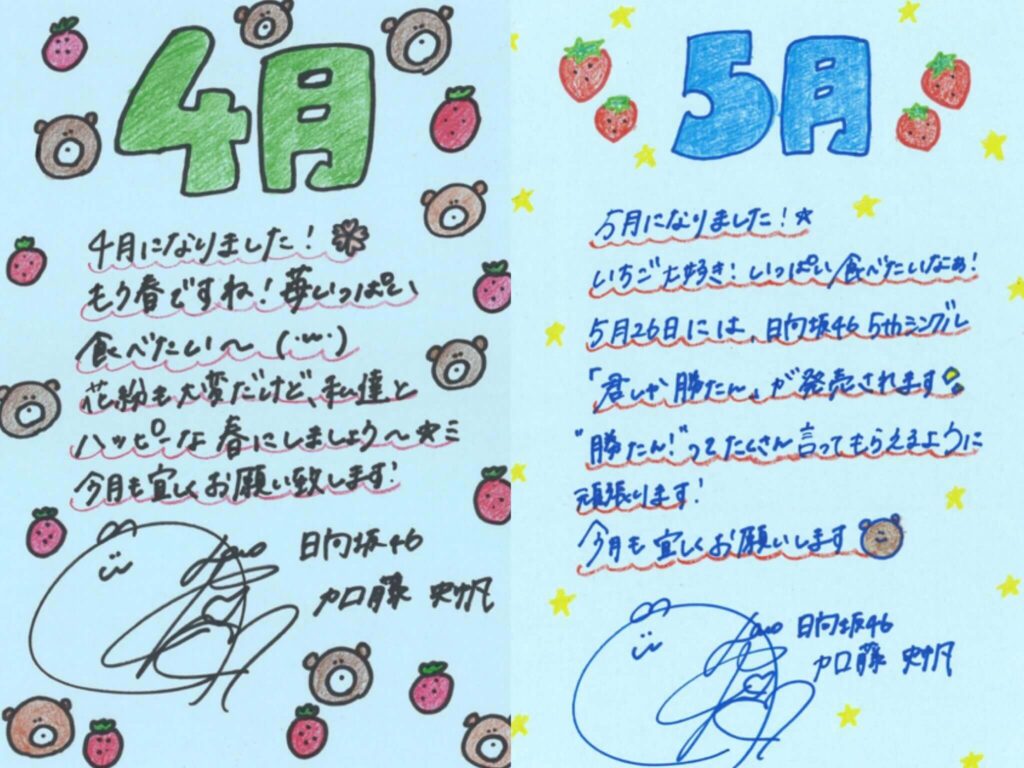 4月
4月になりました!
もう春ですね!苺いっぱい
食べたい〜(・ω・)
花粉も大変だけど、私達と
ハッピーな春にしましょう〜☆ミ
今月も宜しくお願い致します!
日向坂46
加藤 史帆
5月
5月になりました!☆
いちご大好き!いっぱい食べたいなぁ!
5月26日には、日向坂46 5thシングル
「君しか勝たん」が発売されます
"勝たん!"ってたくさん言ってもらえるように
頑張ります!
今月も宜しくお願いします
日向坂46
加藤 史帆